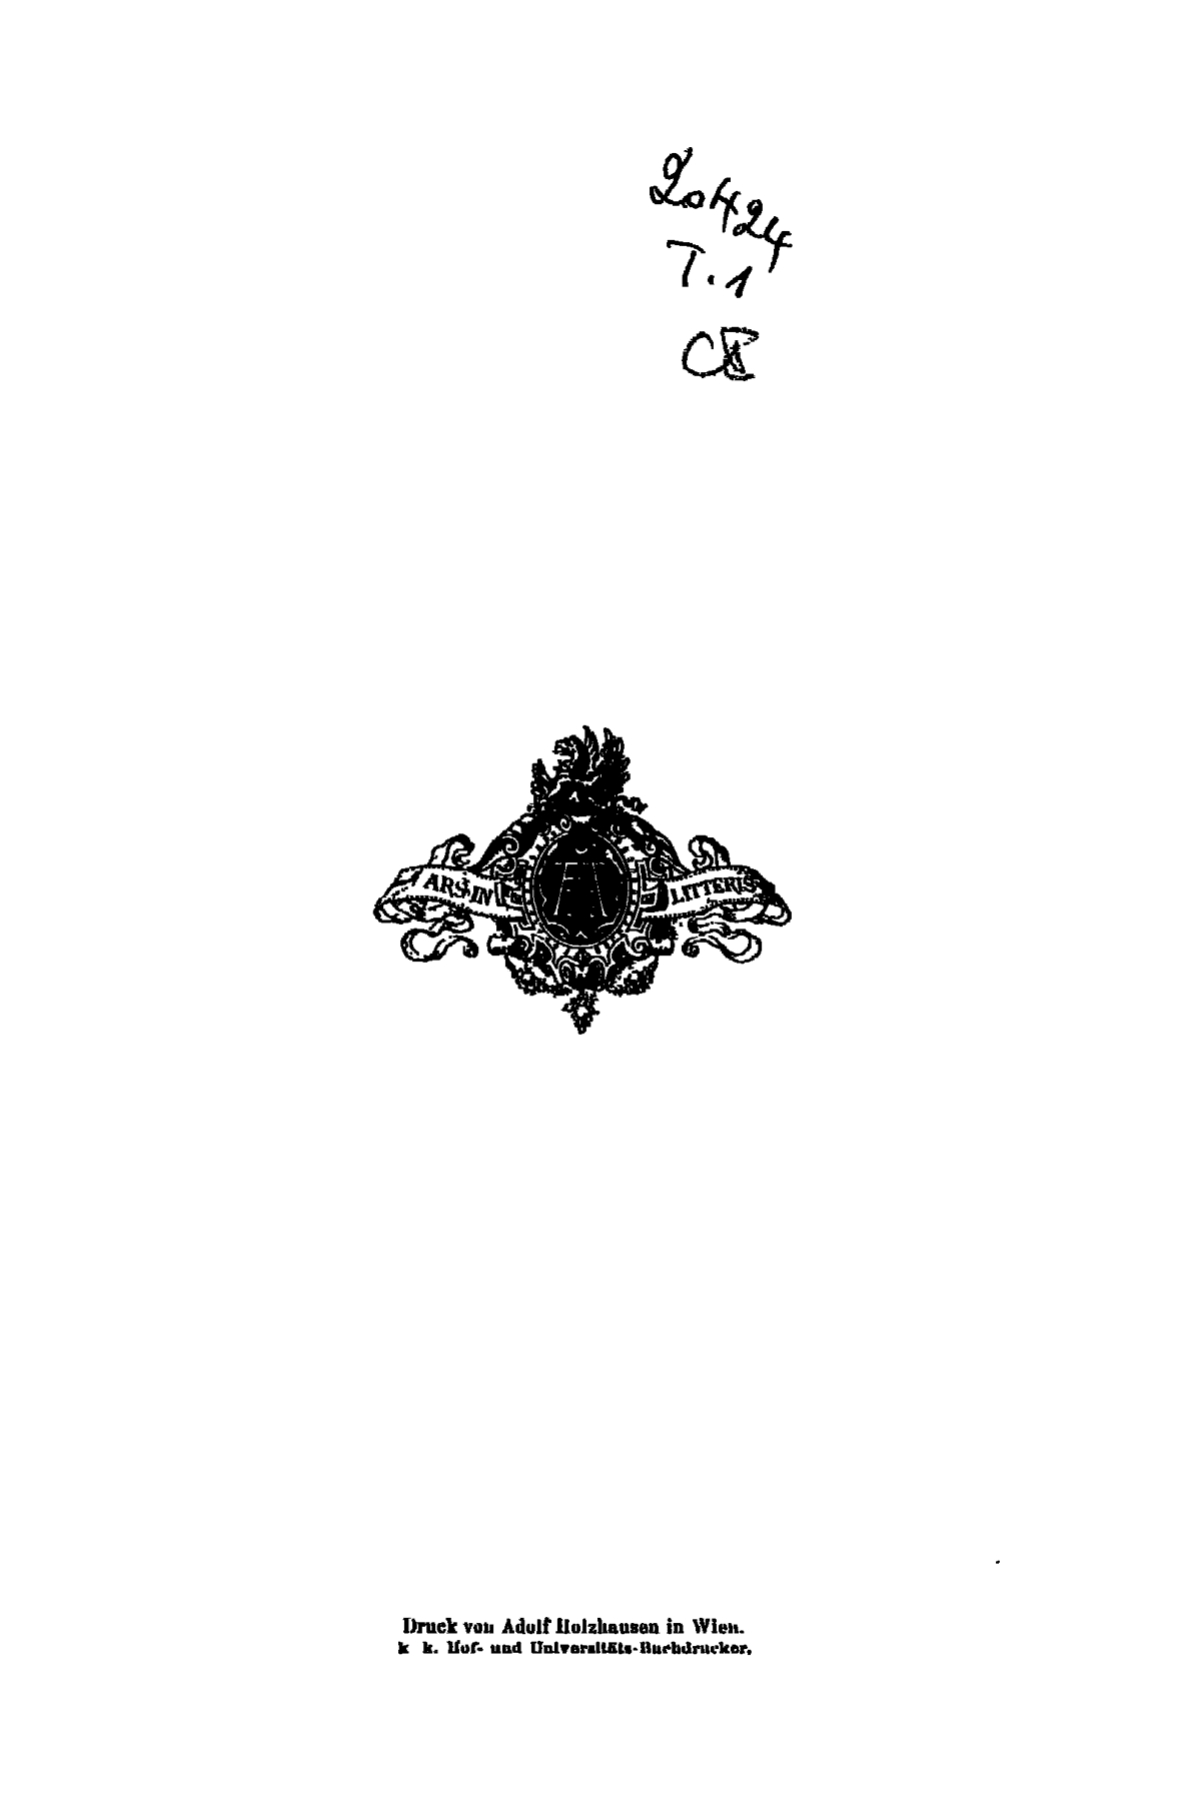 20424
T. 1
ARS IN LITTERIS
Druck von Adolf Holzhausen in Wien.
k k. Hof- und Universitäts-Buchdrucker.